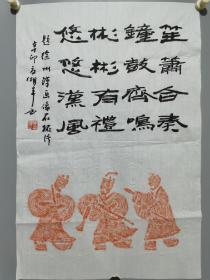 笙簫合奏
鐘鼓齊鳴
彬彬有禮
悠悠漢風
題徐州漢画像石拓片
辛卯